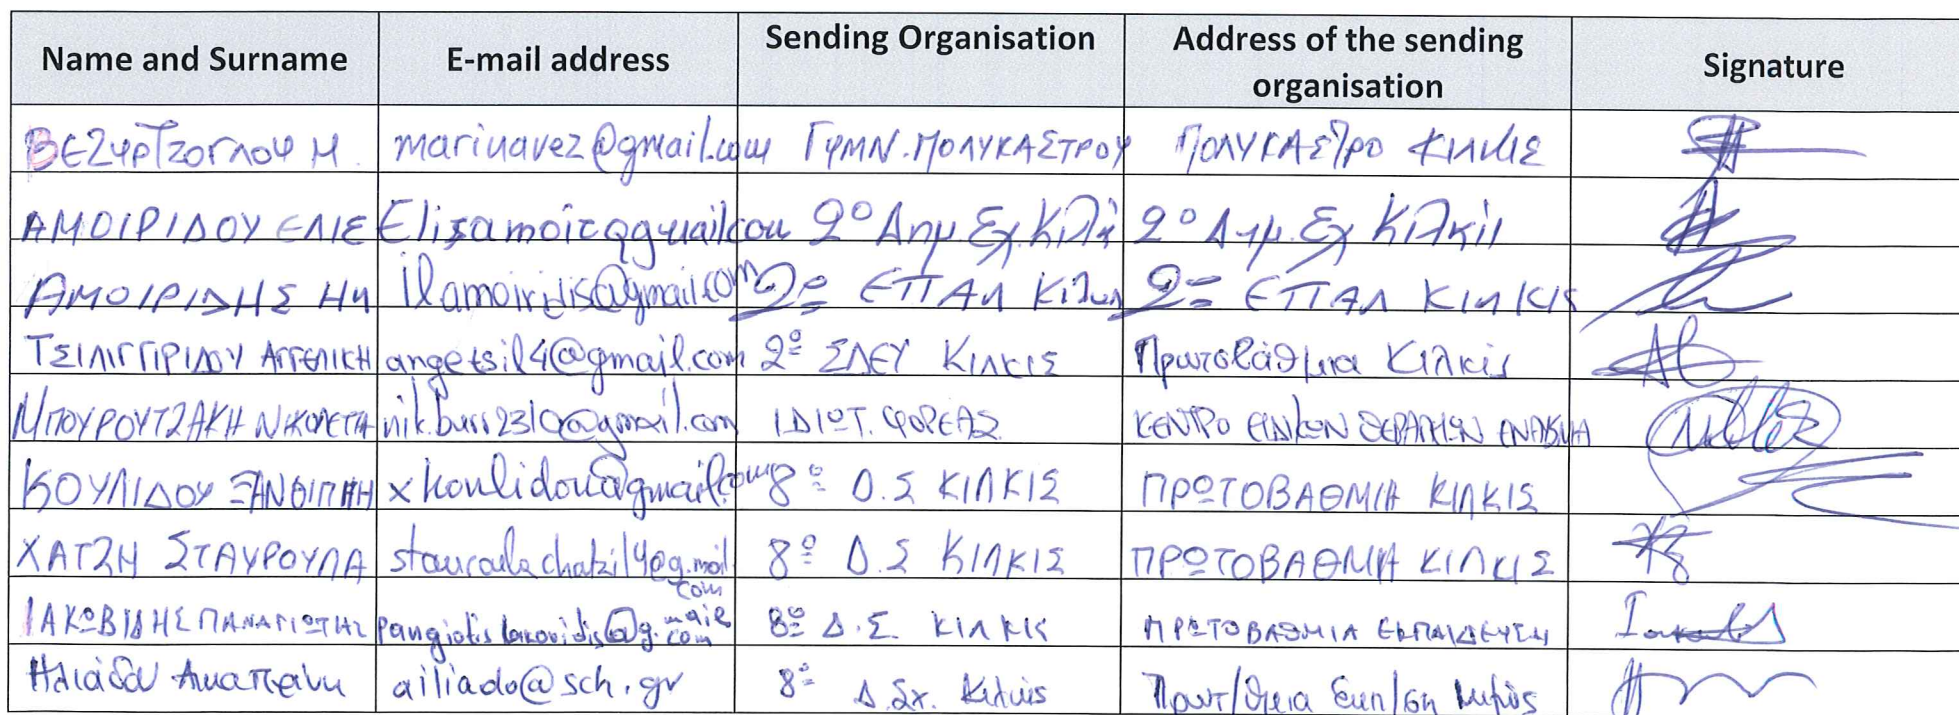 Name and Surname E-mail address Sending Organisation Address of the sending organisation Signature
ΒΕΖΥΡΤΖΟΓΛΟΥ Μ. marinavez@gmail.com ΓΥΜΝ. ΠΟΛΥΚΑΣΤΡΟΥ ΠΟΛΥΚΑΣΤΡΟ ΚΙΛΚΙΣ
ΑΜΟΙΡΙΔΟΥ ΕΛΙΣ 2º Δημ. Σχ. Κιλκίς 2º Δημ. Σχ Κιλκίς
ΑΜΟΙΡΙΔΗΣ ΗΛ ilamoiridis@gmail.com 2º ΕΠΑΛ Κιλκις 2º ΕΠΑΛ ΚΙΛΚΙΣ
ΤΣΙΛΙΓΓΙΡΙΔΟΥ ΑΓΓΕΛΙΚΗ angetsil4@gmail.com 2º ΣΔΕΥ ΚΙΛΚΙΣ Πρωτοβάθμια Κιλκίς
ΜΠΟΥΡΟΥΤΖΑΚΗ ΝΙΚΟΛΕΤΑ nik.burr2310@gmail.com ΙΔΙΩΤ. ΦΟΡΕΑΣ ΚΕΝΤΡΟ ΕΙΔΙΚΩΝ ΘΕΡΑΠΕΙΩΝ
ΚΟΥΛΙΔΟΥ ΞΑΝΘΙΠΠΗ xkoulidou@gmail.com 8º Δ.Σ ΚΙΛΚΙΣ ΠΡΩΤΟΒΑΘΜΙΑ ΚΙΛΚΙΣ
ΧΑΤΖΗ ΣΤΑΥΡΟΥΛΑ stauroulachatzi14@gmail.com 8º Δ.Σ ΚΙΛΚΙΣ ΠΡΩΤΟΒΑΘΜΙΑ ΚΙΛΚΙΣ
ΙΑΚΩΒΙΔΗΣ ΠΑΝΑΓΙΩΤΗΣ pangiotisiakovidis@gmail.com 8º Δ.Σ. ΚΙΛΚΙΣ ΠΡΩΤΟΒΑΘΜΙΑ ΕΚΠΑΙΔΕΥΣΗ
Ηλιάδου ailiado@sch.gr 8º Δ.Σχ. Κιλκίς Πρωτ/θμια Εκπ/ση Κιλκίς